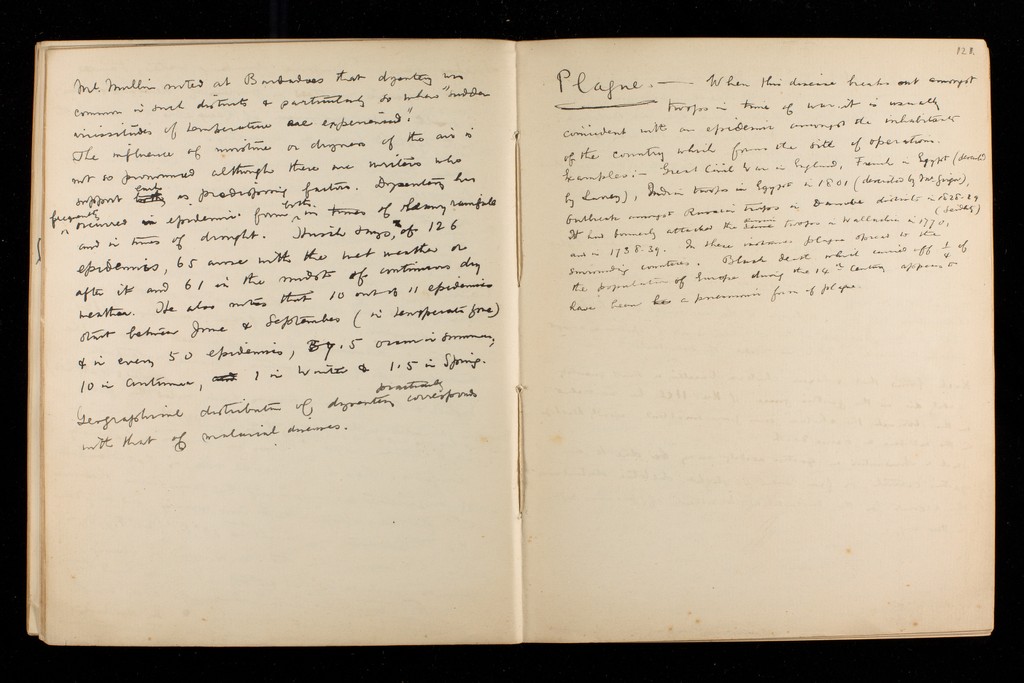 McMullin noted at Barbadoes that dysentery was
common in such districts & particularly so where "sudden
vicissitudes of temperature are experienced".
The influence of moisture or dryness of the air is
not so pronounced although there are writers who
support each as predisposing factors. Dysentery has
frequently occurred in epidemic form both in times of heavy rainfall
and in times of drought. Hirsch says, of 126
epidemics, 65 arose with the wet weather or
after it and 61 in the midst of continuous dry
weather. He also notes that 10 out of 11 epidemics
start between June & September (in temperate zone)
& in every 50 epidemics, 37.5 occur in summer,
10 in autumn, 1 in Winter & 1.5 in Spring.
Geographical distribution of dysentery practically corresponds
with that of malarial diseases.
121.
Plague. — When this disease breaks out amongst
troops in time of war, it is usually
coincident with an epidemic amongst the inhabitants
of the country which forms the site of operations.
Examples:- Great Civil War in England, French in Egypt (described
by Larrey), Indian troops in Egypt in 1801 (described by McGrigor),
Outbreak amongst Russian troops in Danube districts in 1828.29
It had formerly attacked the same troops in Wallachia in 1770,
and in 1738.39. In these instances plague spread to the
surrounding countries. Black death which carried off ¼ of
the population of Europe during the 14th Century appears to
have been a pneumonic form of plague.